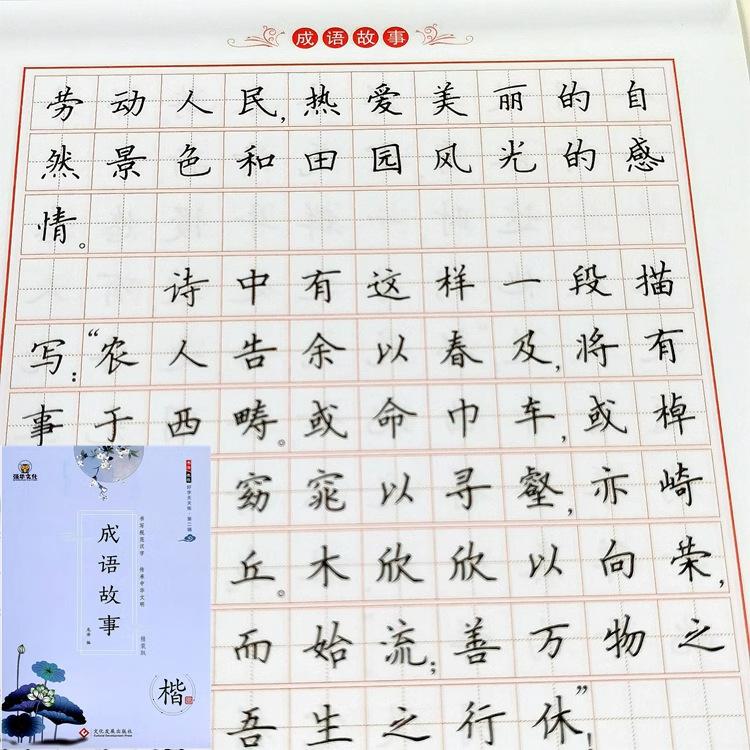 成语故事
劳动人民,热爱美丽的自
然景色和田园风光的感
情。
诗中有这样一段描
写:“农人告余以春及,将有
事于西畴。或命巾车,或棹
窈窕以寻壑,亦崎
丘。木欣欣以向荣,
而始流;善万物之
吾生之行休”,
成语故事
书写规范汉字 传承中华文明
楷
文化发展出版社
Cultural Development Press